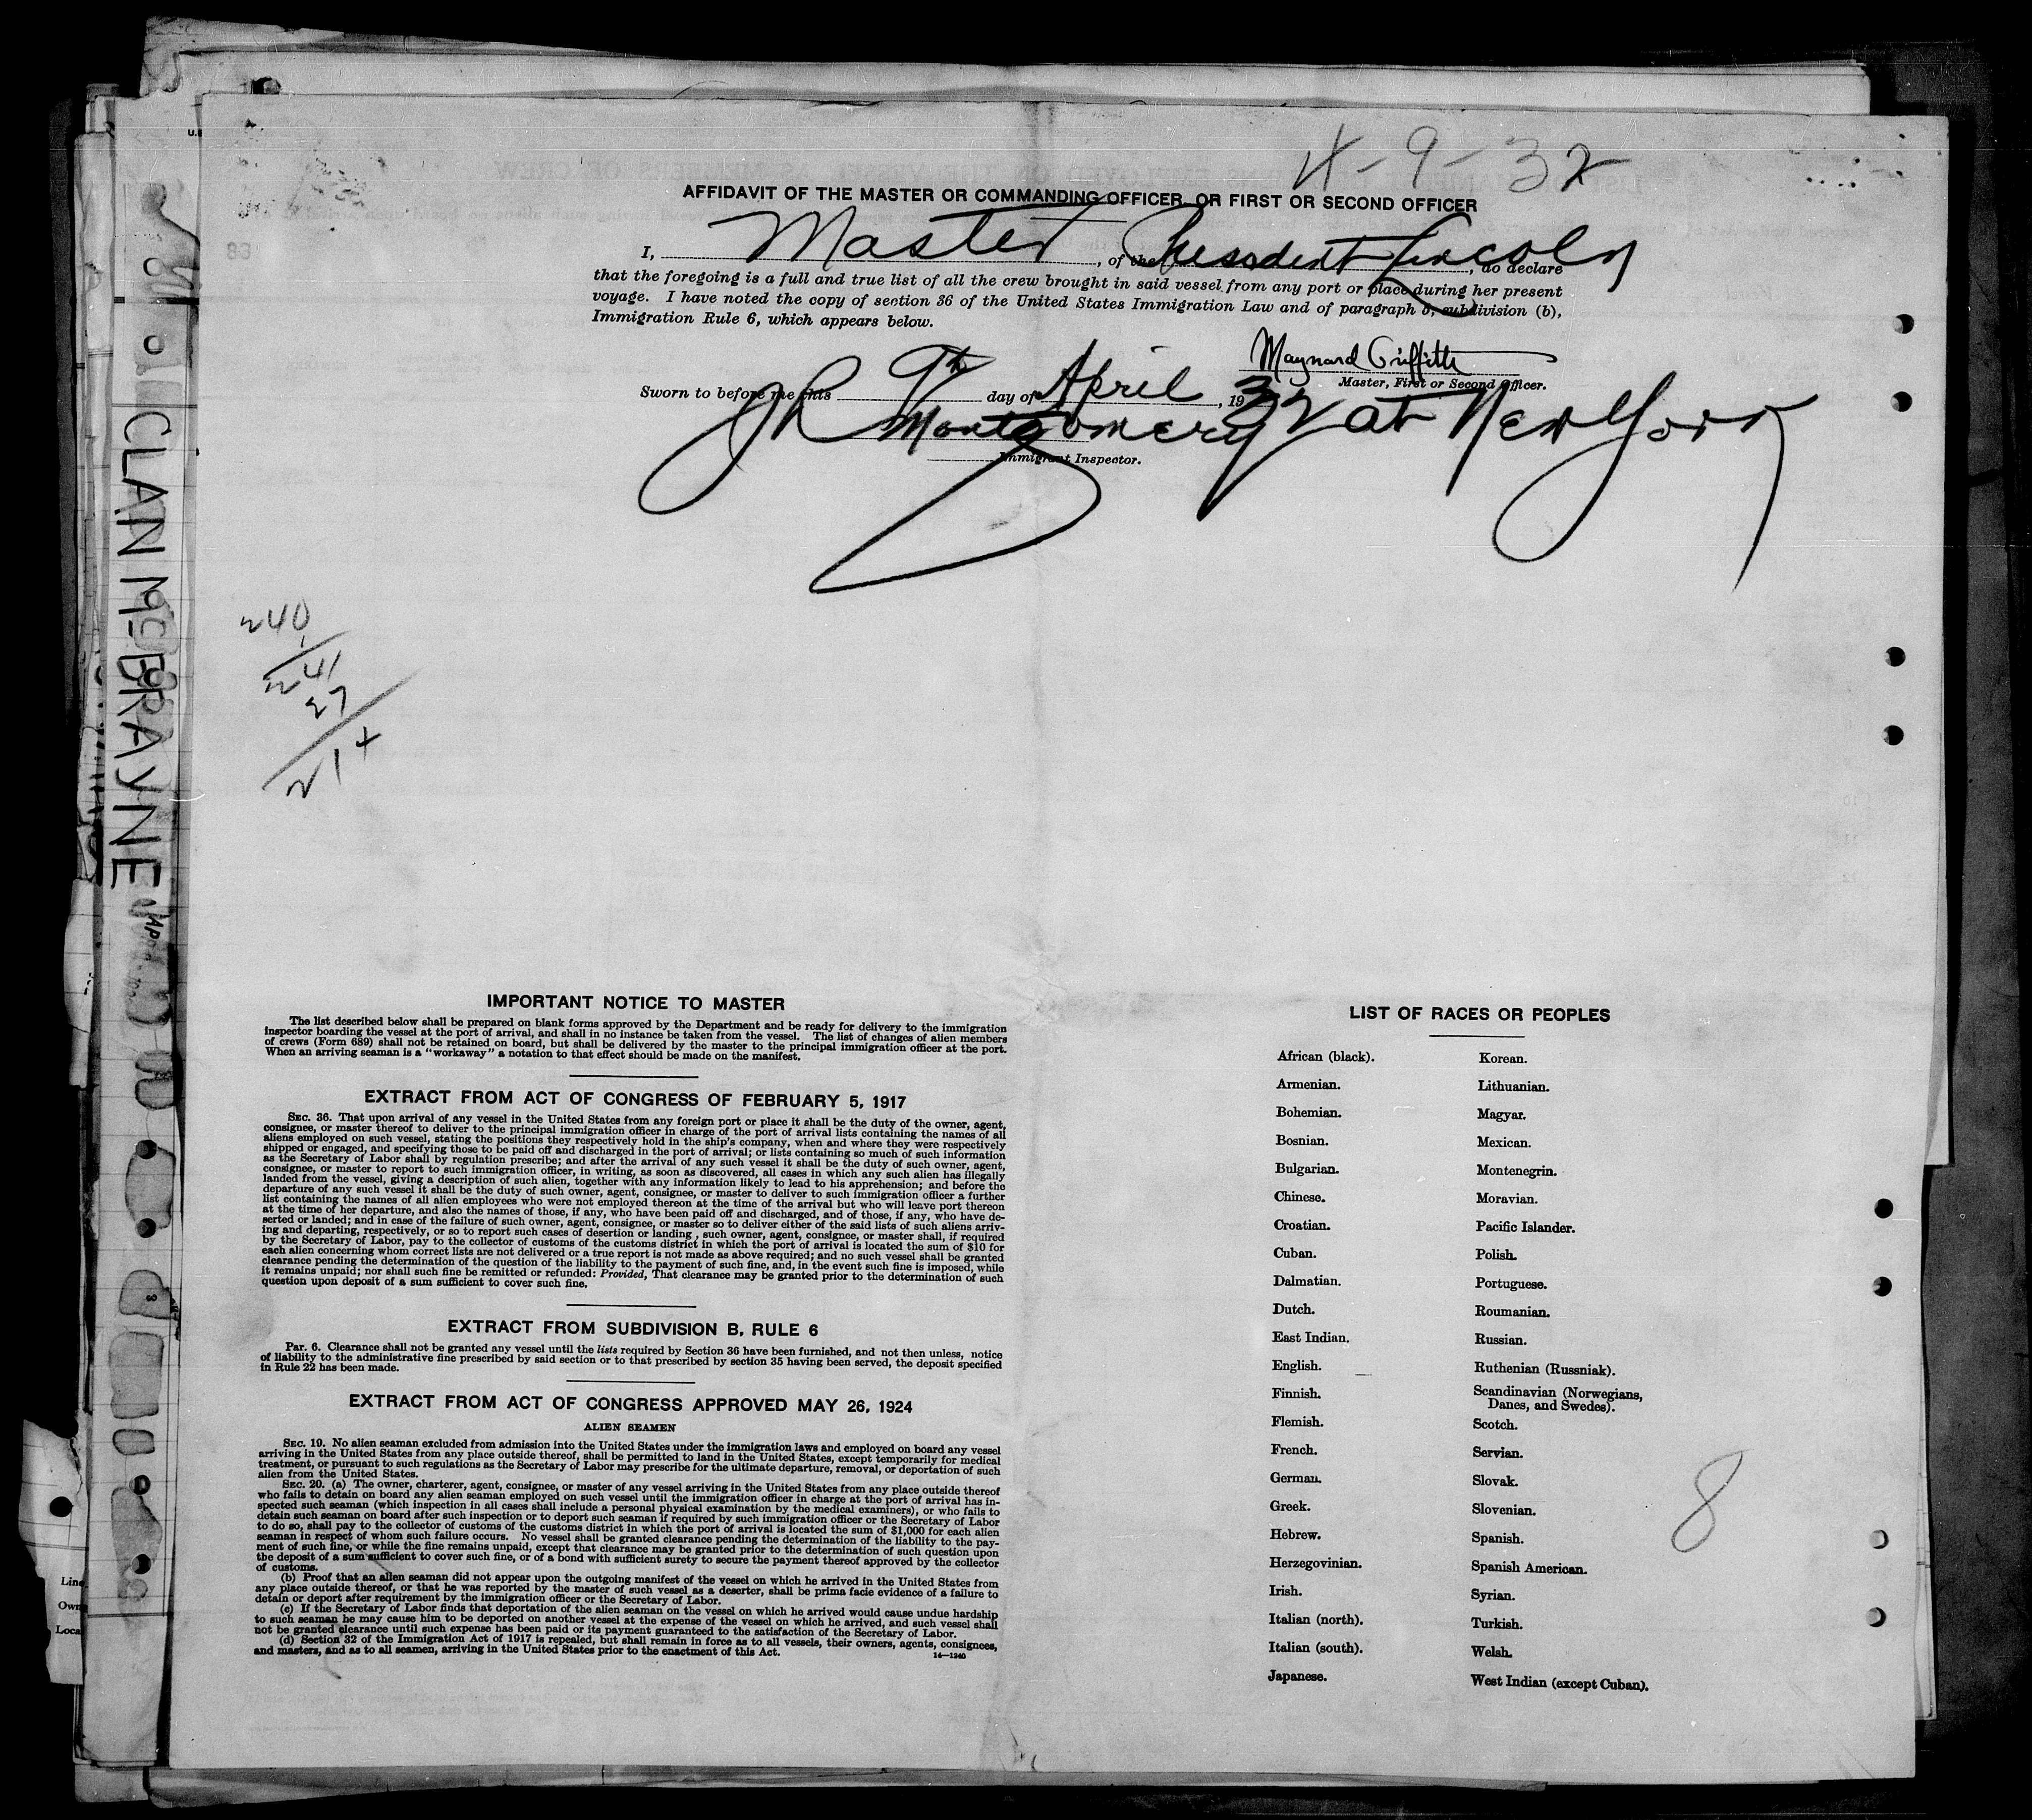 4-9-32
AFFIDAVIT OF THE MASTER OR COMMANDING OFFICER, OR FIRST OR SECOND OFFICER
I, Master, of the President Lincoln, do declare
that the foregoing is a full and true list of all the crew brought in said vessel from any port or place during her present
voyage. I have noted the copy of section 36 of the United States Immigration Law and of paragraph 6, subdivision (b),
Immigration Rule 6, which appears below.
Maynard Griffith
Master, First or Second Officer.
Sworn to before me this 9th day of April, 1932 at New York
Montgomery
Immigrant Inspector.
CLAN McBRAYNE
240
1
241
27
214
IMPORTANT NOTICE TO MASTER
The list described below shall be prepared on blank forms approved by the Department and be ready for delivery to the immigration
inspector boarding the vessel at the port of arrival, and shall in no instance be taken from the vessel. The list of changes of alien members
of crews (Form 689) shall not be retained on board, but shall be delivered by the master to the principal immigration officer at the port.
When an arriving seaman is a "workaway" a notation to that effect should be made on the manifest.
EXTRACT FROM ACT OF CONGRESS OF FEBRUARY 5, 1917
SEC. 36. That upon arrival of any vessel in the United States from any foreign port or place it shall be the duty of the owner, agent,
consignee, or master thereof to deliver to the principal immigration officer in charge of the port of arrival lists containing the names of all
aliens employed on such vessel, stating the positions they respectively hold in the ship's company, when and where they were respectively
shipped or engaged, and specifying those to be paid off and discharged in the port of arrival; or lists containing so much of such information
as the Secretary of Labor shall by regulation prescribe; and after the arrival of any such vessel it shall be the duty of such owner, agent,
consignee, or master to report to such immigration officer, in writing, as soon as discovered, all cases in which any such alien has illegally
landed from the vessel, giving a description of such alien, together with any information likely to lead to his apprehension; and before the
departure of any such vessel it shall be the duty of such owner, agent, consignee, or master to deliver to such immigration officer a further
list containing the names of all alien employees who were not employed thereon at the time of the arrival but who will leave port thereon
at the time of her departure, and also the names of those, if any, who have been paid off and discharged, and of those, if any, who have de-
serted or landed; and in case of the failure of such owner, agent, consignee, or master so to deliver either of the said lists of such aliens arriv-
ing and departing, respectively, or so to report such cases of desertion or landing, such owner, agent, consignee, or master shall, if required
by the Secretary of Labor, pay to the collector of customs of the customs district in which the port of arrival is located the sum of $10 for
each alien concerning whom correct lists are not delivered or a true report is not made as above required; and no such vessel shall be granted
clearance pending the determination of the question of the liability to the payment of such fine, and, in the event such fine is imposed, while
it remains unpaid; nor shall such fine be remitted or refunded: Provided, That clearance may be granted prior to the determination of such
question upon deposit of a sum sufficient to cover such fine.
EXTRACT FROM SUBDIVISION B, RULE 6
Par. 6. Clearance shall not be granted any vessel until the lists required by Section 36 have been furnished, and not then unless, notice
of liability to the administrative fine prescribed by said section or to that prescribed by section 35 having been served, the deposit specified
in Rule 22 has been made.
EXTRACT FROM ACT OF CONGRESS APPROVED MAY 26, 1924
ALIEN SEAMEN
SEC. 19. No alien seaman excluded from admission into the United States under the immigration laws and employed on board any vessel
arriving in the United States from any place outside thereof, shall be permitted to land in the United States, except temporarily for medical
treatment, or pursuant to such regulations as the Secretary of Labor may prescribe for the ultimate departure, removal, or deportation of such
alien from the United States.
SEC. 20. (a) The owner, charterer, agent, consignee, or master of any vessel arriving in the United States from any place outside thereof
who fails to detain on board any alien seaman employed on such vessel until the immigration officer in charge at the port of arrival has in-
spected such seaman (which inspection in all cases shall include a personal physical examination by the medical examiners), or who fails to
detain such seaman on board after such inspection or to deport such seaman if required by such immigration officer or the Secretary of Labor
to do so, shall pay to the collector of customs of the customs district in which the port of arrival is located the sum of $1,000 for each alien
seaman in respect of whom such failure occurs. No vessel shall be granted clearance pending the determination of the liability to the pay-
ment of such fine, or while the fine remains unpaid, except that clearance may be granted prior to the determination of such question upon
the deposit of a sum sufficient to cover such fine, or of a bond with sufficient surety to secure the payment thereof approved by the collector
of customs.
(b) Proof that an alien seaman did not appear upon the outgoing manifest of the vessel on which he arrived in the United States from
any place outside thereof, or that he was reported by the master of such vessel as a deserter, shall be prima facie evidence of a failure to
detain or deport after requirement by the immigration officer or the Secretary of Labor.
(c) If the Secretary of Labor finds that deportation of the alien seaman on the vessel on which he arrived would cause undue hardship
to such seaman he may cause him to be deported on another vessel at the expense of the vessel on which he arrived, and such vessel shall
not be granted clearance until such expense has been paid or its payment guaranteed to the satisfaction of the Secretary of Labor.
(d) Section 32 of the Immigration Act of 1917 is repealed, but shall remain in force as to all vessels, their owners, agents, consignees,
and masters, and as to all seamen, arriving in the United States prior to the enactment of this Act.
14—1240
LIST OF RACES OR PEOPLES
African (black). Korean.
Armenian. Lithuanian.
Bohemian. Magyar.
Bosnian. Mexican.
Bulgarian. Montenegrin.
Chinese. Moravian.
Croatian. Pacific Islander.
Cuban. Polish.
Dalmatian. Portuguese.
Dutch. Roumanian.
East Indian. Russian.
English. Ruthenian (Russniak).
Finnish. Scandinavian (Norwegians,
Danes, and Swedes).
Flemish. Scotch.
French. Servian.
German. Slovak.
Greek. Slovenian.
Hebrew. Spanish.
Herzegovinian. Spanish American.
Irish. Syrian.
Italian (north). Turkish.
Italian (south). Welsh.
Japanese. West Indian (except Cuban).
8
Line
Own
Loca